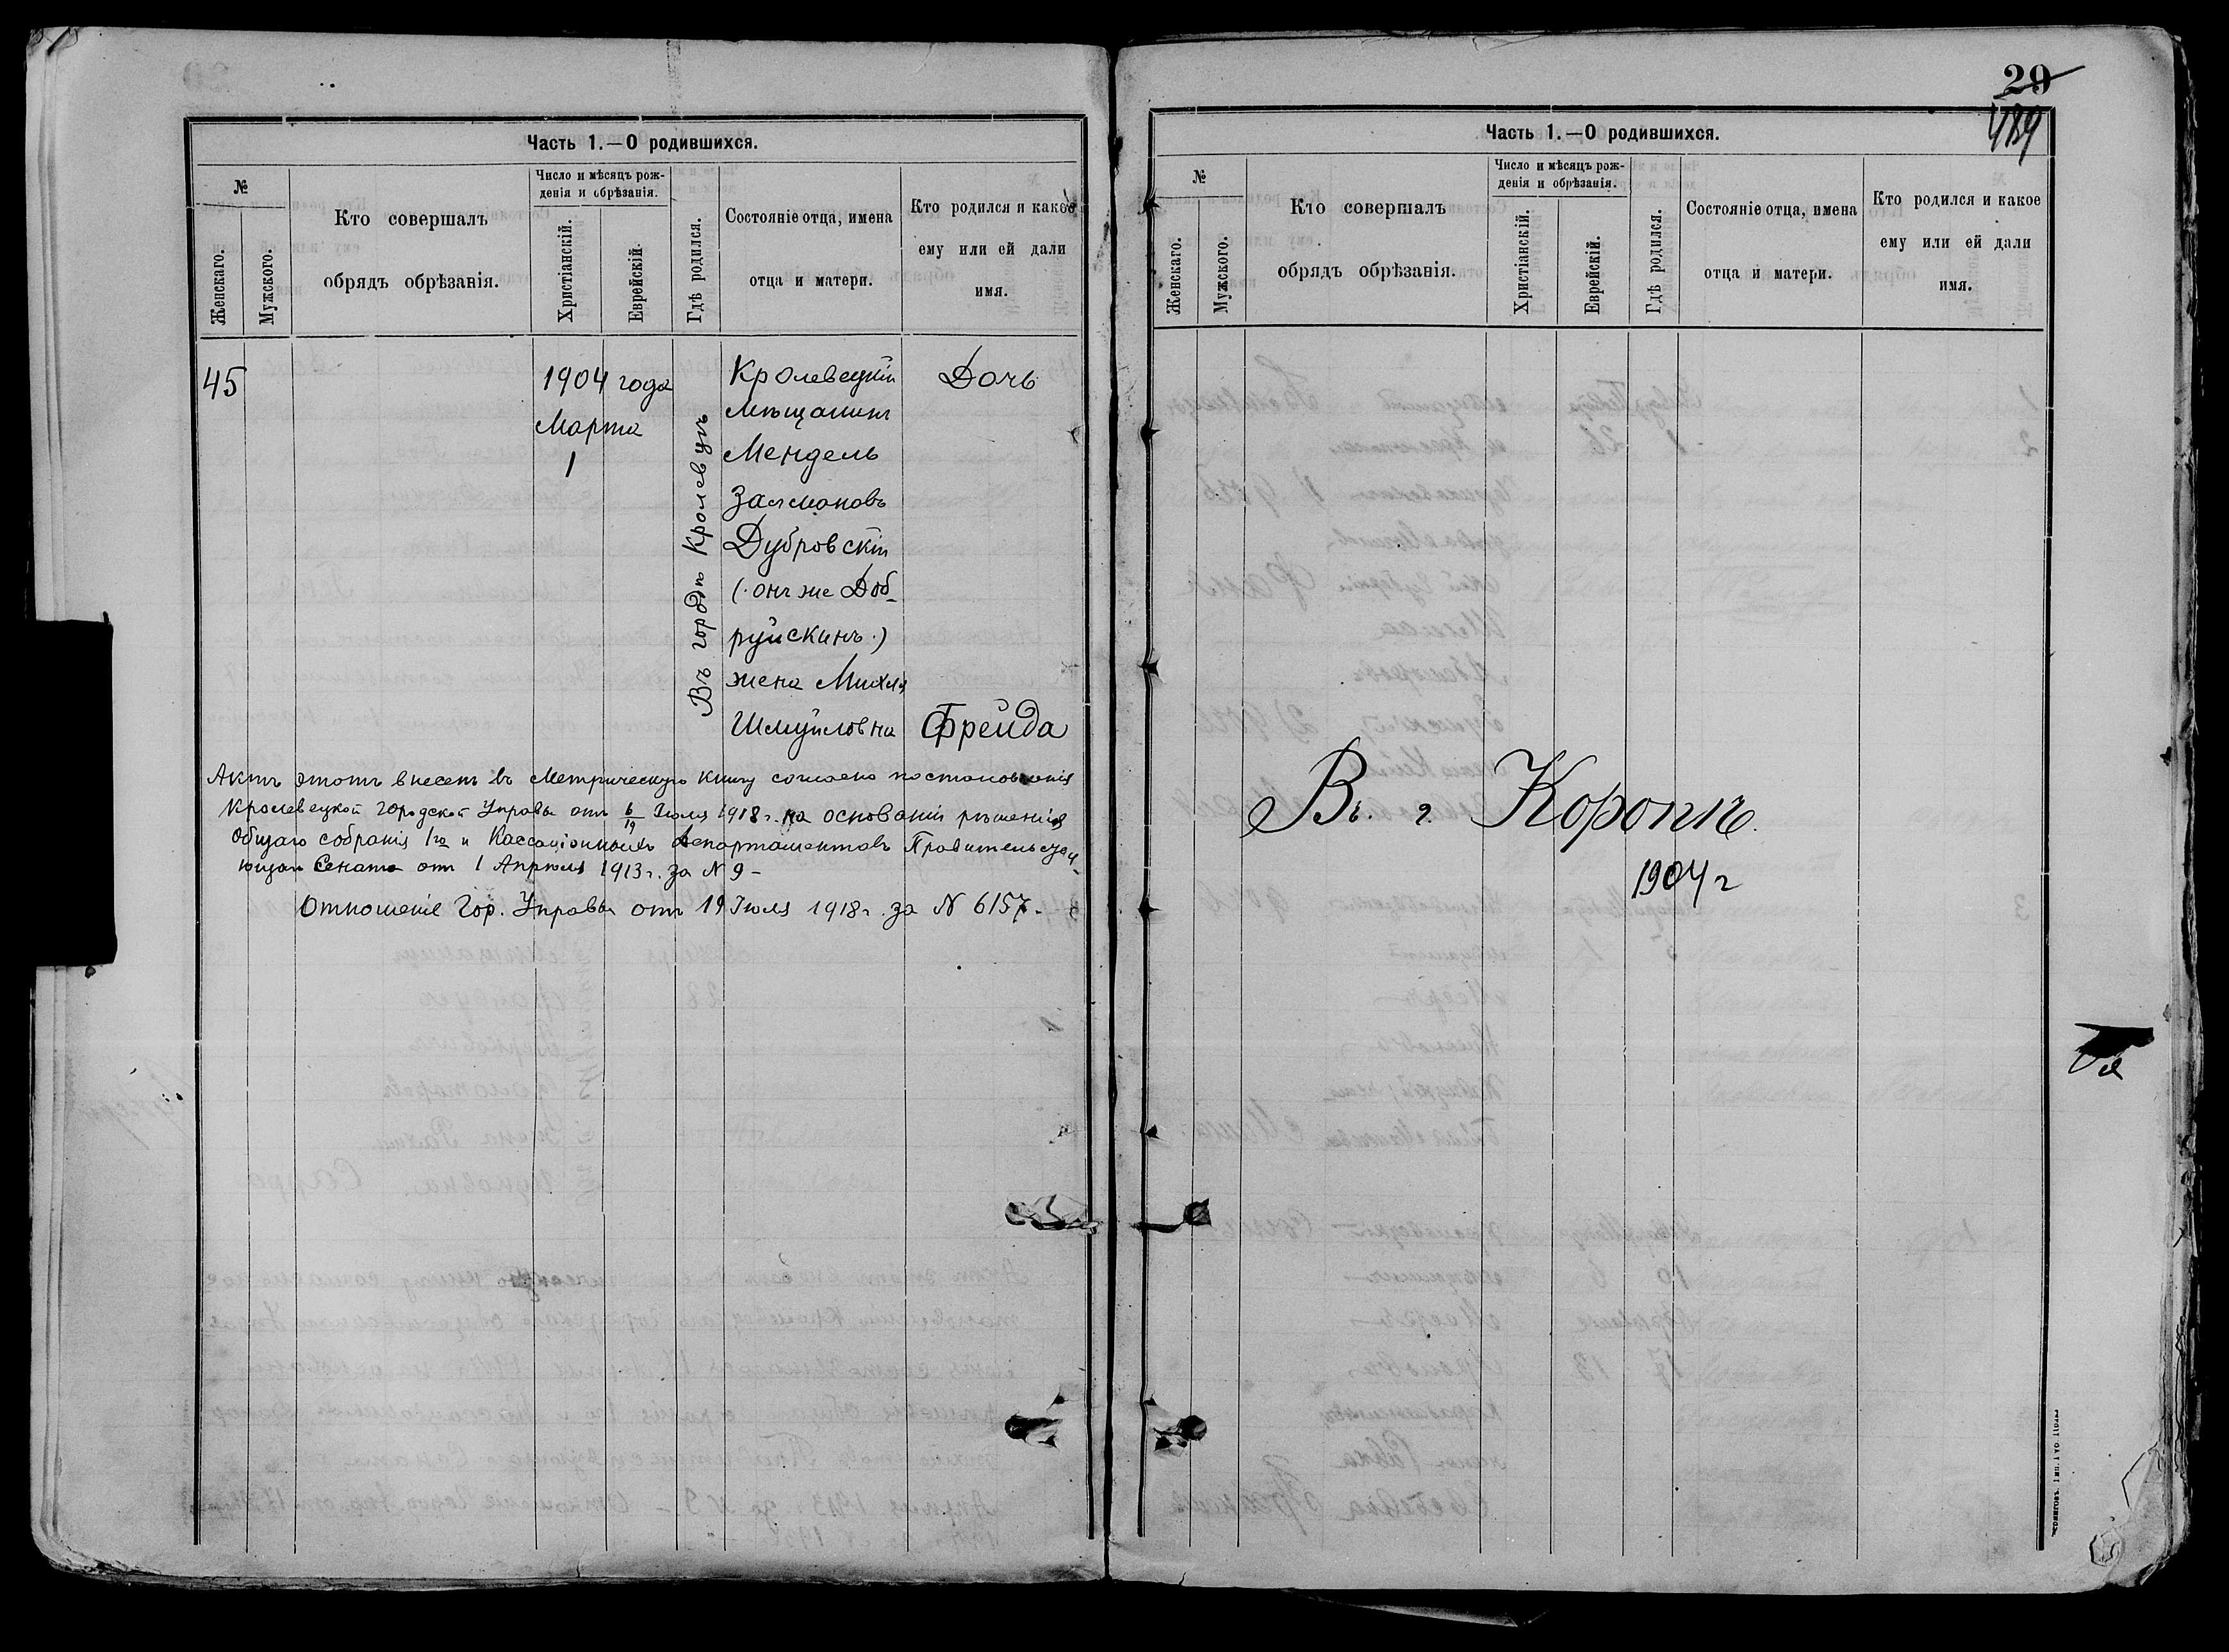 Часть 1.—О родившихся.
№
Женскаго.
Мужского.
Кто совершалъ
обрядъ обрѣзанія.
Число и мѣсяцъ рож-
денія и обрѣзанія.
Христіанскій.
Еврейскій.
Гдѣ родился.
Состояніе отца, имена
отца и матери.
Кто родился и какое
ему или ей дали
имя.
45
1904 года
Марта
1
Въ городѣ Кролевцѣ
Кролевецкій
Мѣщанинъ
Мендель
Залмановъ
Дубровскій
(онъ же Доб-
руйскинъ.)
жена Михля
Шмуйловна
Дочь
Фрейда
Актъ этотъ внесенъ въ Метрическую книгу согласно постановленія
Кролевецкой Городской Управы отъ 6/19 Іюля 1918 г. на основаніи рѣшенія
Общаго собранія 1го и Кассаціонныхъ Департаментовъ Правительству-
ющаго Сената отъ 1 Апрѣля 1913 г. за N 9 –
Отношеніе Гор. Управы отъ 19 Іюля 1918 г. за N 6157.
29
489
Часть 1.—О родившихся.
№
Женскаго.
Мужского.
Кто совершалъ
обрядъ обрѣзанія.
Число и мѣсяцъ рож-
денія и обрѣзанія.
Христіанскій.
Еврейскій.
Гдѣ родился.
Состояніе отца, имена
отца и матери.
Кто родился и какое
ему или ей дали
имя.
Въ г. Коропѣ.
1904 г